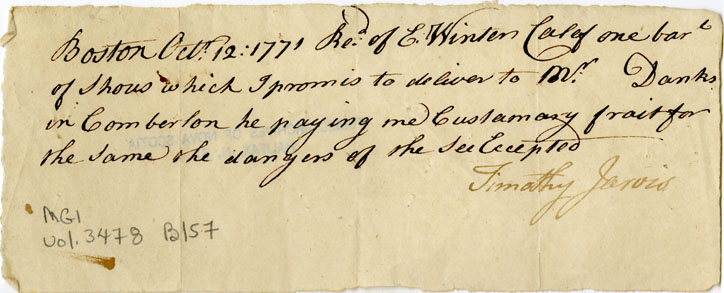 Boston Octr. 12: 1771 Recd. of E. Winter Calef one barl
of Shous which I promis to deliver to Mr. Danks
in Comberlon he paying me Custamary frait for
the Same the dangers of the See Eccepted
Timathy Jarvis
MG1
vol. 3478 B157